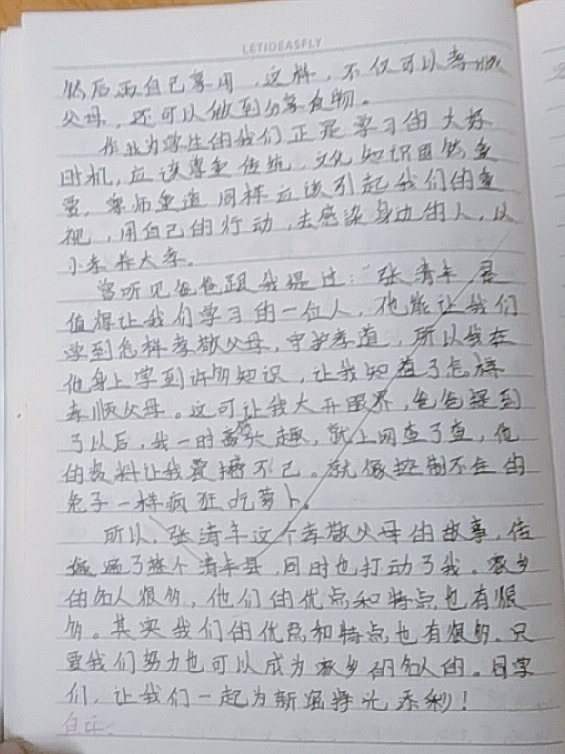 LETIDEASFLY
然后再自己享用，这样，不仅可以孝顺
父母，还可以做到分享食物。
作为学生的我们正是学习的大好
时机，应该尊重传统，文化知识固然重
要，尊师重道同样应该引起我们的重
视，用自己的行动，去感染身边的人，以
小孝养大孝。
常听见爸爸跟我提过：张清丰是
值得让我们学习的一位人，他能让我们
学到怎样孝敬父母，守护孝道，所以我在
他身上学到许多知识，让我知道了怎样
孝顺父母。这可让我大开眼界，爸爸提到
了以后，我一时兴趣，就上网查了查，他
的资料让我爱不已。就像控制不住的
兔子一样疯狂吃萝卜。
所以，张清丰这个孝敬父母的故事，传
遍了整个清丰县，同时也打动了我。家乡
的名人很多，他们的优点和特点也有很
多。其实我们的优点和特点也有很多，只
要我们努力也可以成为家乡的名人的。同学
们，让我们一起为新添彩！